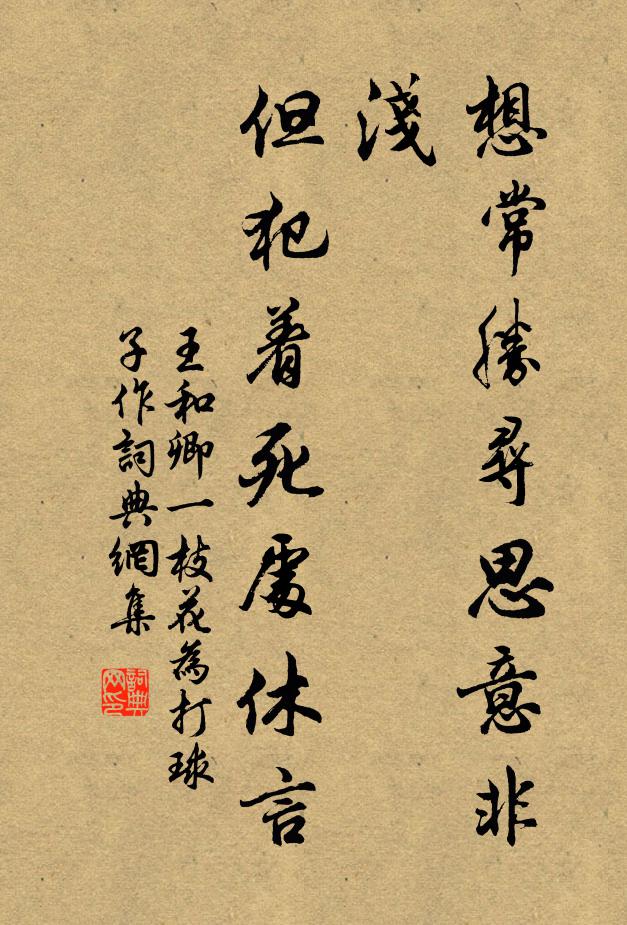 想常勝尋思意非
淺
但犯着死處休言
王和卿一枝花為打球
子作詞典網集
詞典
网印